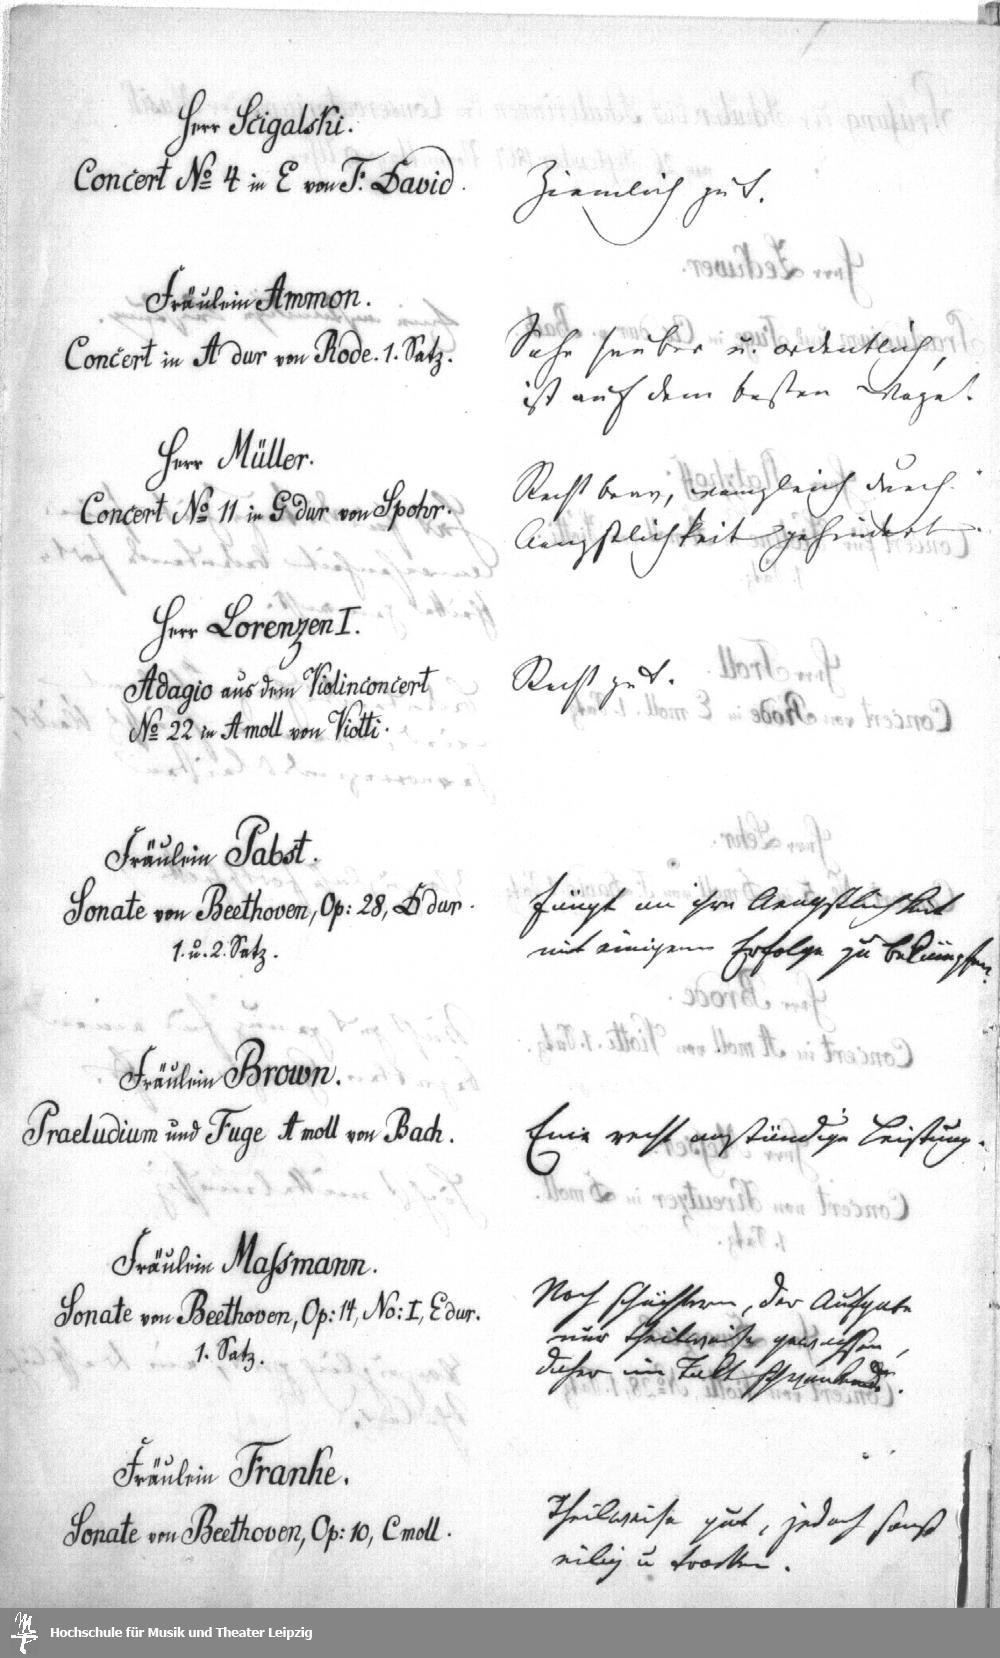 Herr Scigalski.
Concert No 4 in E von F. David.
Ziemlich gut.
Fräulein Ammon.
Concert in A dur von Rode. 1. Satz.
Sehr sauber u. ordentlich,
ist auf dem besten Wege.
Herr Müller.
Concert No 11 in G dur von Spohr.
Recht brav, wenngleich durch
Aengstlichkeit gehindert.
Herr Lorenzen I.
Adagio aus dem Violinconcert
No 22 in A moll von Viotti.
Recht gut.
Fräulein Pabst.
Sonate von Beethoven, Op: 28, D dur.
1. u. 2. Satz.
Fängt an ihre Aengstlichkeit
mit einigem Erfolge zu bekämpfen.
Fräulein Brown.
Praeludium und Fuge A moll von Bach.
Eine recht anständige Leistung.
Fräulein Massmann.
Sonate von Beethoven, Op: 14, No: I, E dur.
1. Satz.
Noch schüchtern, der Aufgabe
nur theilweise gewachsen,
daher im Takt schwankend.
Fräulein Franke.
Sonate von Beethoven, Op: 10, C moll.
Theilweise gut, jedoch sonst
eilig u trocken.
Hochschule für Musik und Theater Leipzig